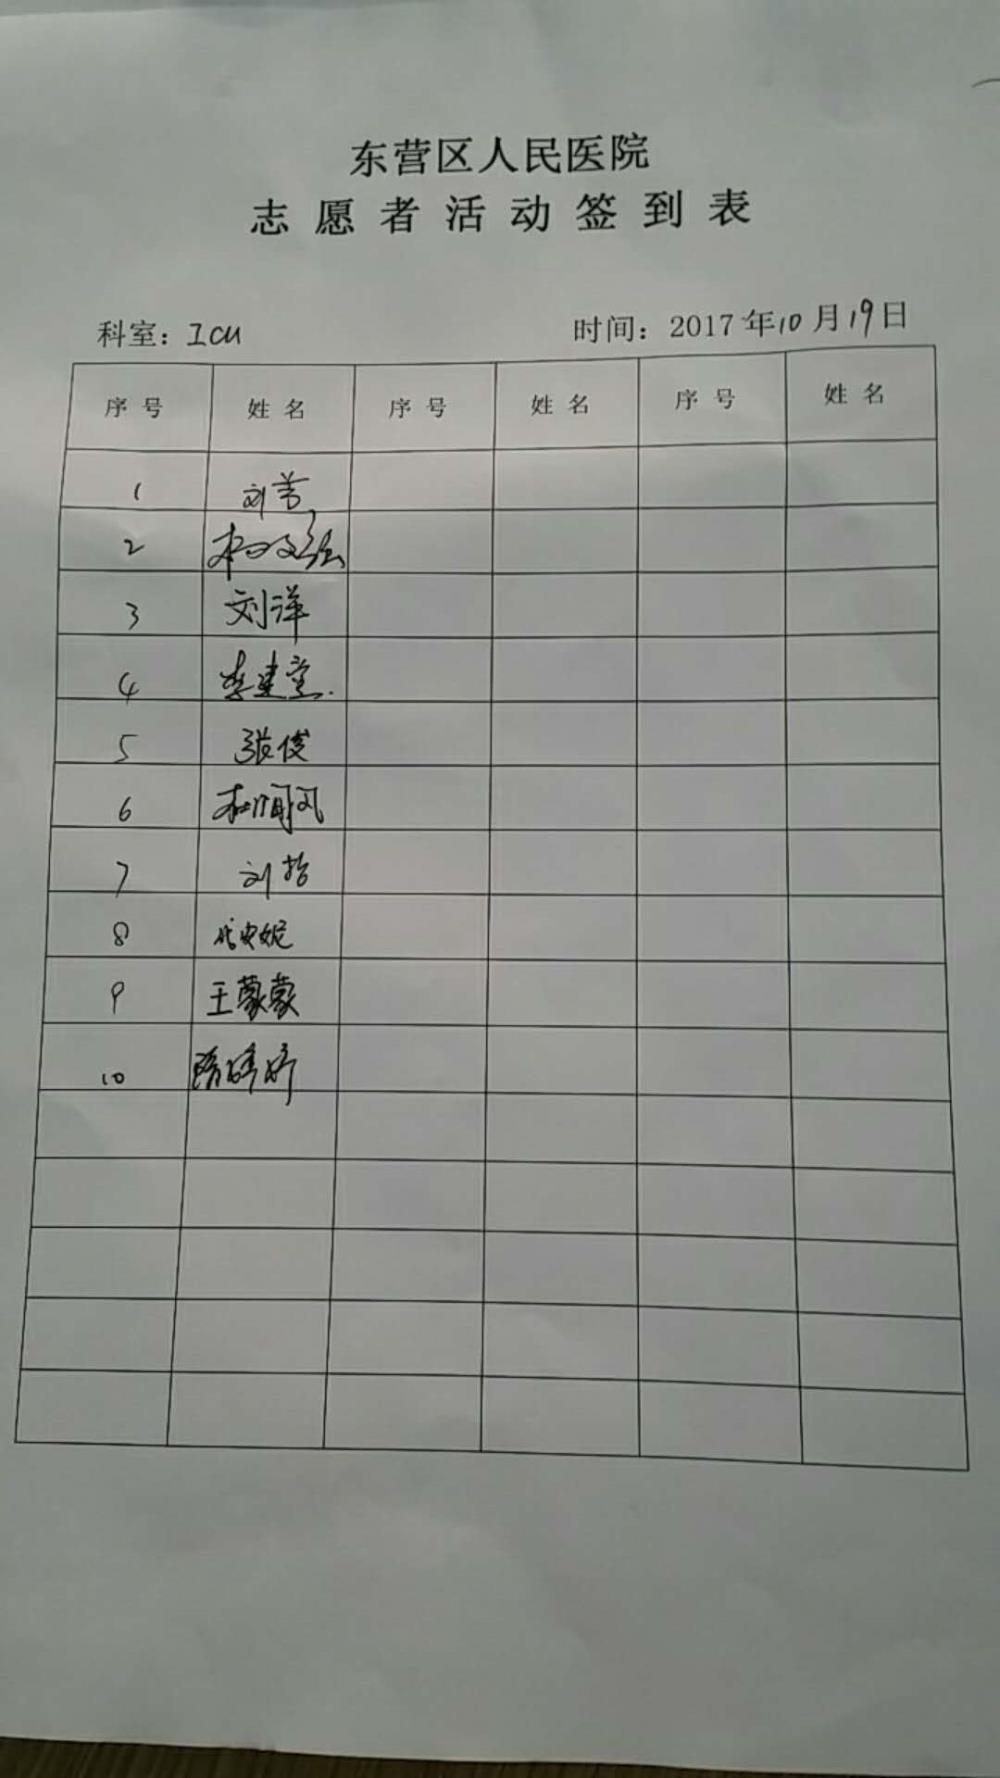 东营区人民医院
志愿者活动签到表
科室：ICU 时间：2017年10月19日
序号 姓名 序号 姓名 序号 姓名
1 刘芳
2
3 刘洋
4 李建莹
5 张俊
6
7 刘
8 代安妮
9 王蒙蒙
10 隋婷婷